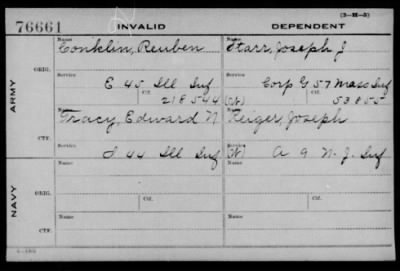 (3—H—5)
76661 INVALID DEPENDENT
Name Name
Conklin, Reuben Starr, Joseph J
ARMY
ORIG.
Service Service
E 45 Ill Inf Corp G 57 Mass Inf
Ctf. Ctf.
218544 (W) 53855
Name Name
Tracy, Edward N Reiger, Joseph
CTF.
Service Service
I 44 Ill Inf (W) A 9 N. J. Inf
NAVY
Name Ctf. Name Ctf.
ORIG.
Service Service
Name Name
CTF.